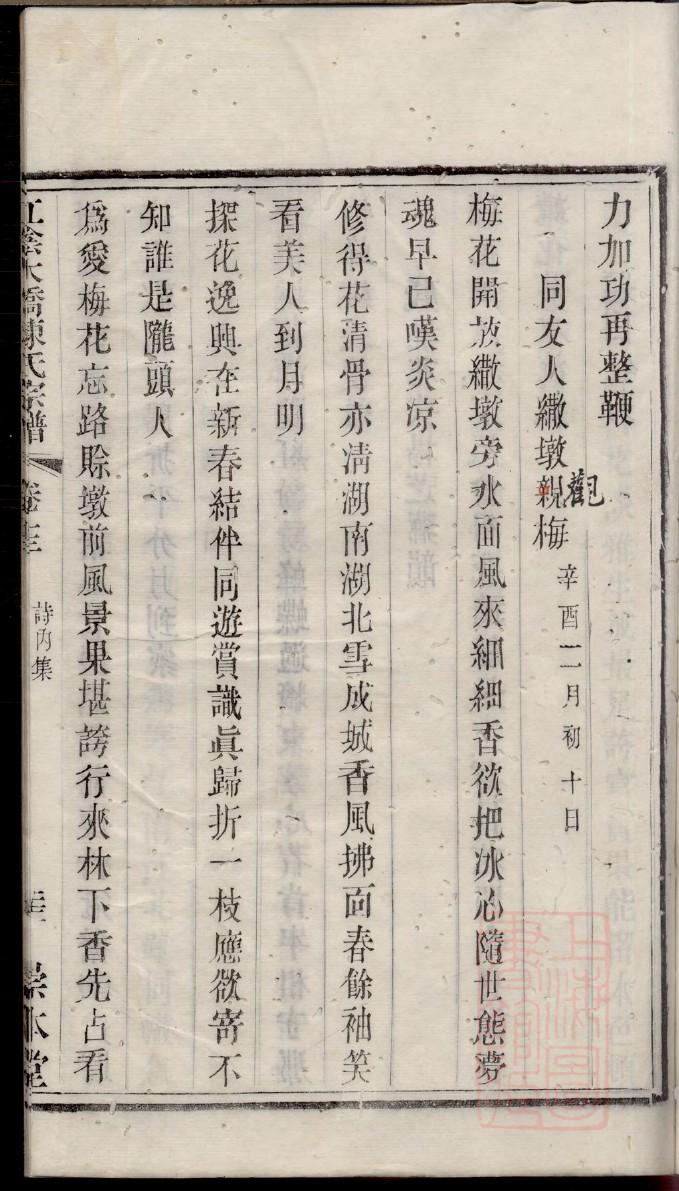 力加功再整鞭
同友人繖墩親梅 辛酉二月初十日
觀
梅花開放繖墩旁水面風來細細香欲把冰心隨世態夢
魂早已嘆炎凉
修得花清骨亦清湖南湖北雪成城香風拂面春餘袖笑
看美人到月明
探花逸興在新春結伴同遊賞識眞歸折一枝應欲寄不
知誰是隴頭人
爲愛梅花忘路賒墩前風景果堪誇行來林下香先占看
江陰大橋陳氏宗譜 卷十三 詩內集 崇本堂